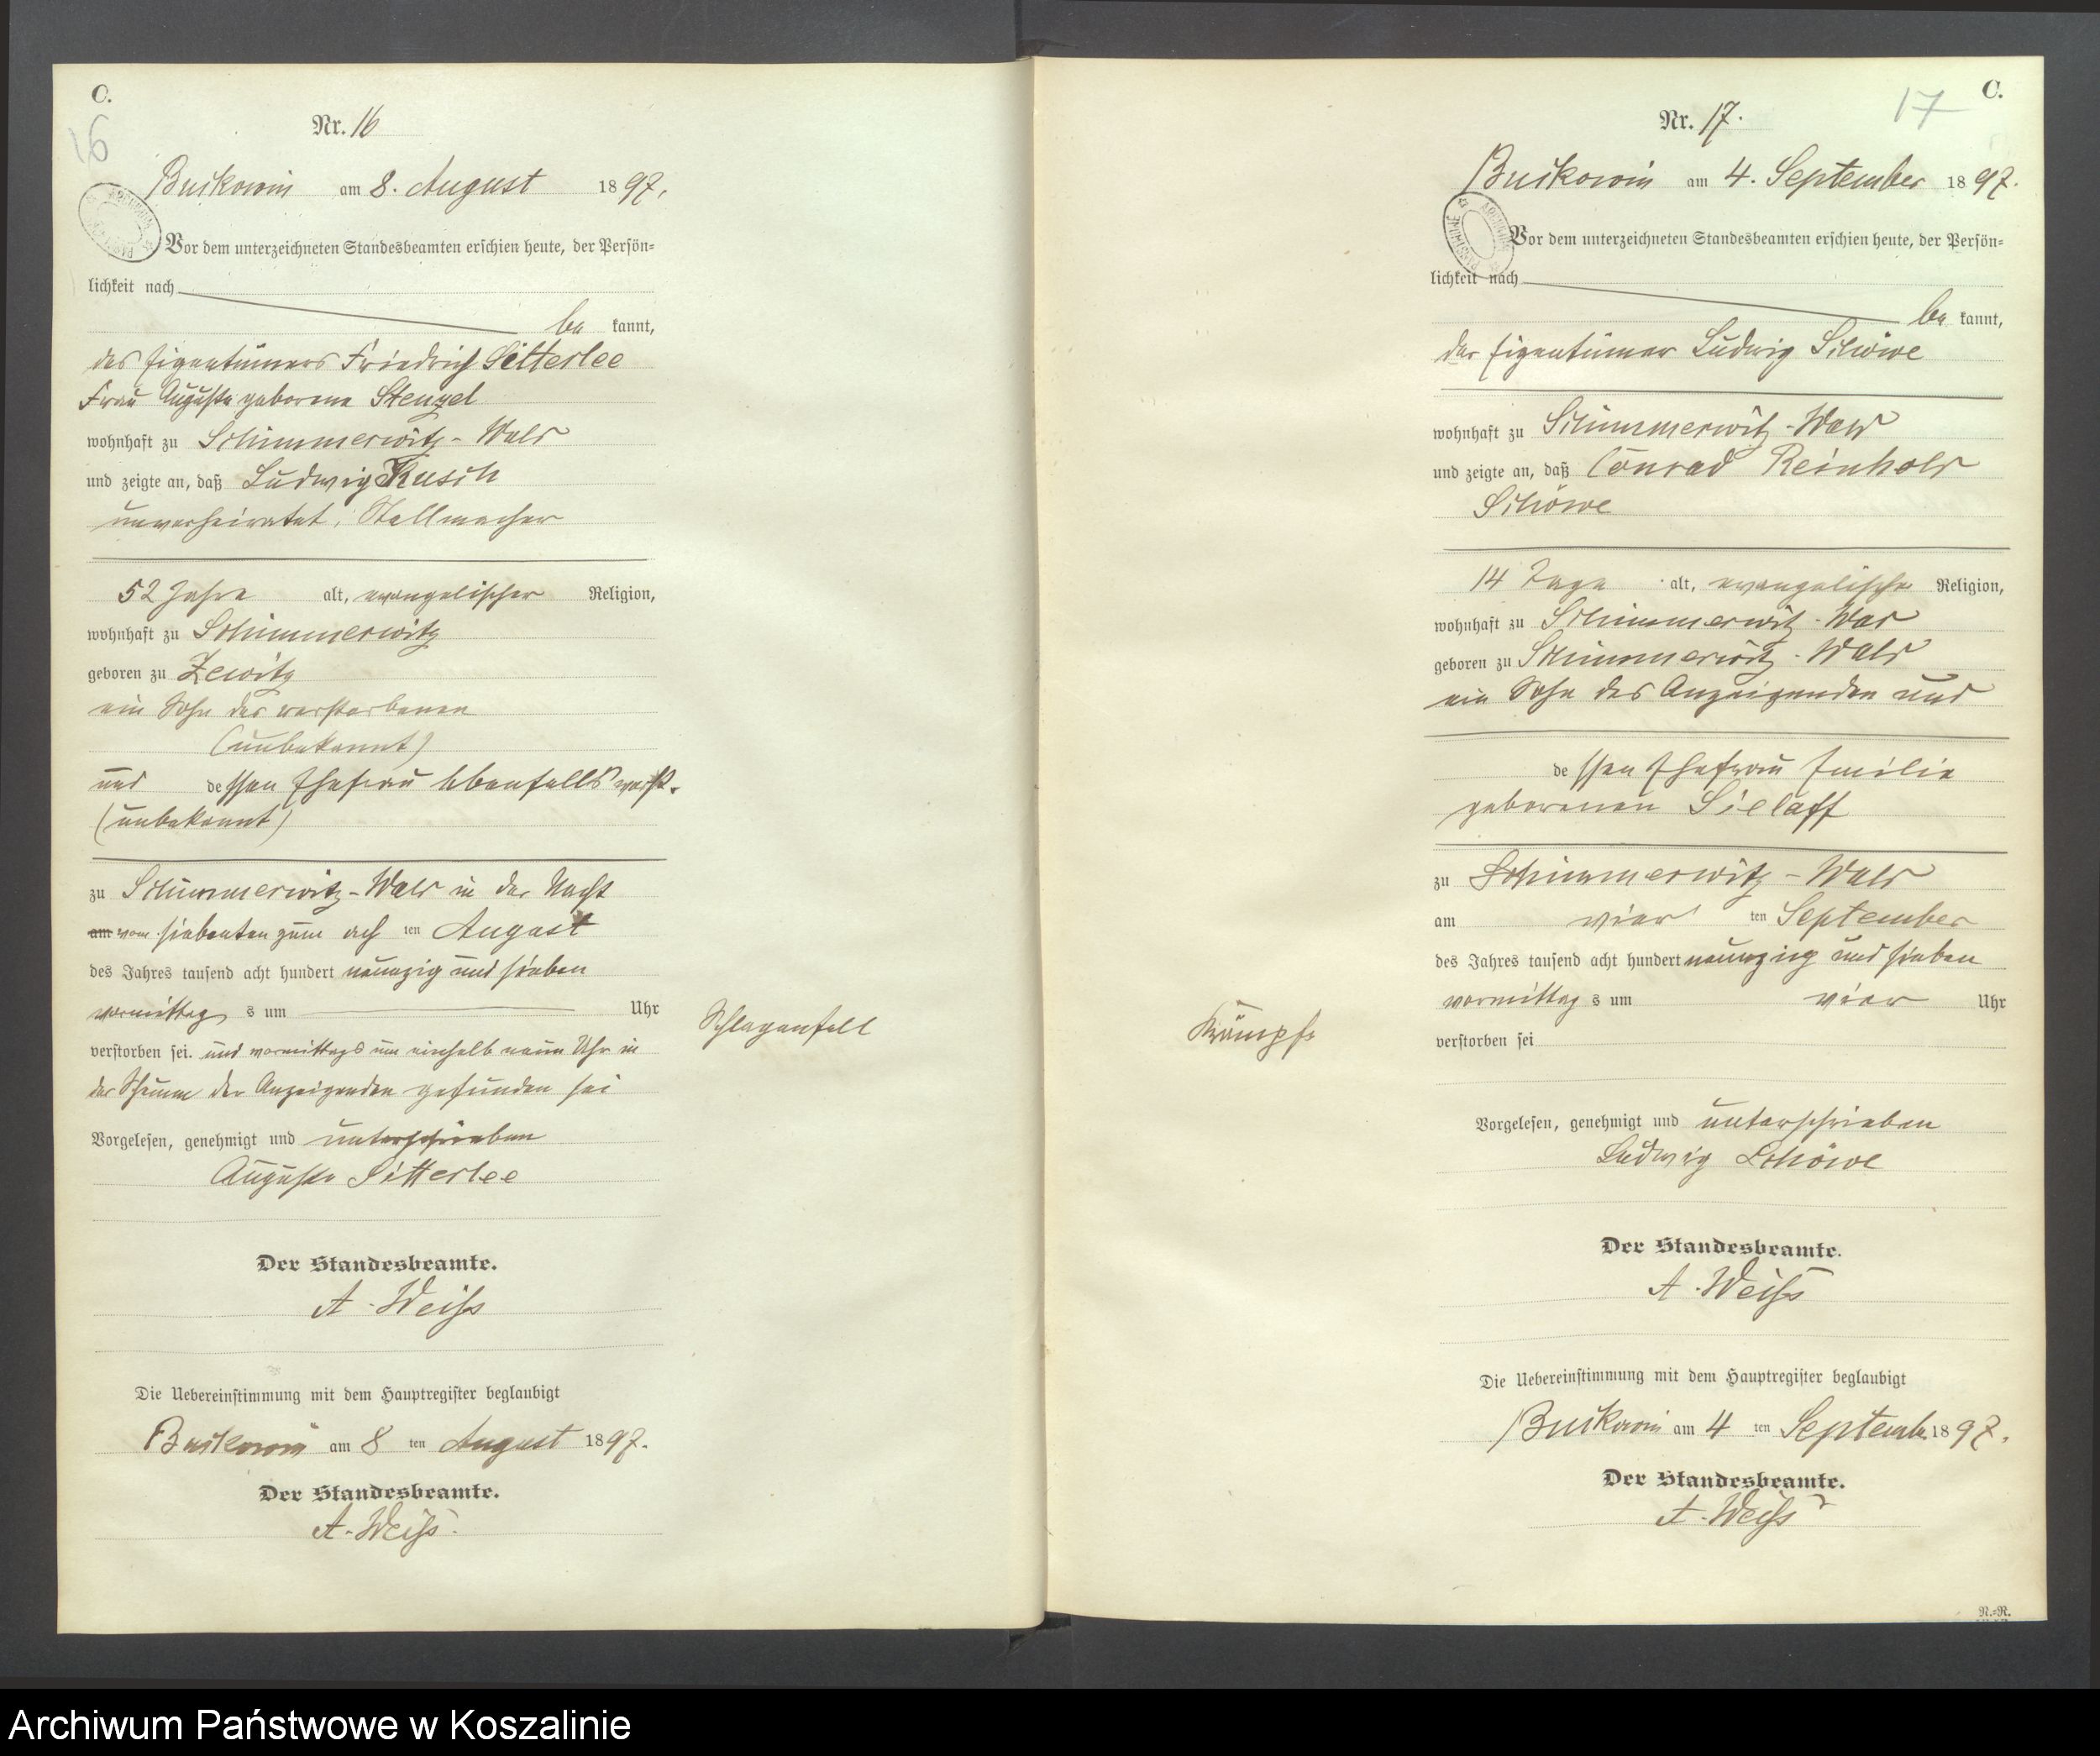 C.
16
Nr. 16
Buckowin am 8. August 1897.
Vor dem unterzeichneten Standesbeamten erschien heute, der Persön=
lichkeit nach
be kannt,
des Eigentümers Friedrich Sitterlee
Frau Auguste geborene Stenzel
wohnhaft zu Schimmerwitz-Wald
und zeigte an, daß Ludwig Rusch
unverheiratet, Stellmacher
52 Jahre alt, evangelischer Religion,
wohnhaft zu Schimmerwitz
geboren zu Zewitz
ein Sohn des verstorbenen
(unbekannt)
und dessen Ehefrau ebenfalls verst.
(unbekannt)
zu Schimmerwitz-Wald in der Nacht
am vom siebenten zum ach ten August
des Jahres tausend acht hundert neunzig und sieben
vormittag s um Uhr
verstorben sei. und vormittags um einhalb neun Uhr in
der Scheune der Anzeigenden gefunden sei
Schlaganfall
Vorgelesen, genehmigt und unterschrieben
Auguste Sitterlee
Der Standesbeamte.
A. Weiss
Die Uebereinstimmung mit dem Hauptregister beglaubigt
Buckowin am 8 ten August 1897.
Der Standesbeamte.
A. Weiss.
C.
17
Nr. 17.
Buckowin am 4. September 1897.
Vor dem unterzeichneten Standesbeamten erschien heute, der Persön=
lichkeit nach
be kannt,
der Eigentümer Ludwig Schöwe
wohnhaft zu Schimmerwitz-Wald
und zeigte an, daß Conrad Reinhold
Schöwe
14 Tage alt, evangelischer Religion,
wohnhaft zu Schimmerwitz-Wald
geboren zu Schimmerwitz-Wald
ein Sohn des Anzeigenden und
dessen Ehefrau Emilie
geborenen Sielaff
zu Schimmerwitz-Wald
am vier ten September
des Jahres tausend acht hundert neunzig und sieben
vormittag s um vier Uhr
verstorben sei
Krämpfe
Vorgelesen, genehmigt und unterschrieben
Ludwig Schöwe
Der Standesbeamte.
A. Weiss
Die Uebereinstimmung mit dem Hauptregister beglaubigt
Buckowin am 4 ten Septemb. 1897.
Der Standesbeamte.
A. Weiss
R.=R.
Archiwum Państwowe w Koszalinie